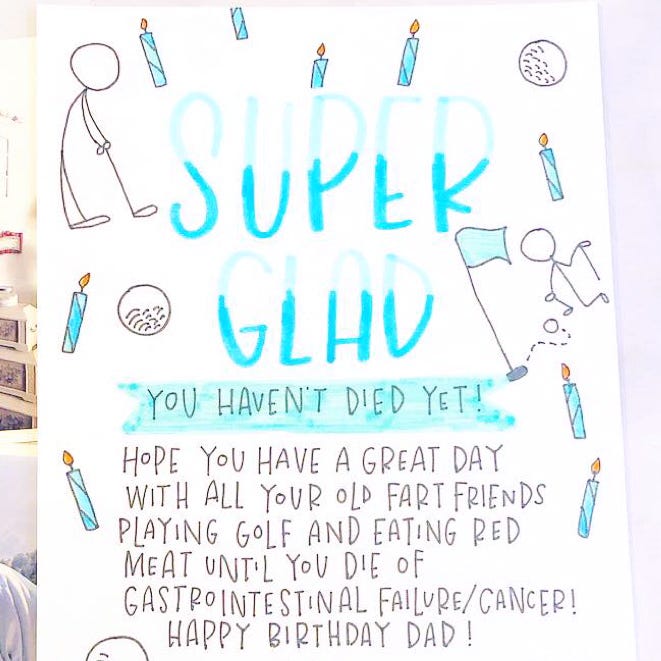 SUPER
GLAD
YOU HAVEN'T DIED YET!
HOPE YOU HAVE A GREAT DAY
WITH ALL YOUR OLD FART FRIENDS
PLAYING GOLF AND EATING RED
MEAT UNTIL YOU DIE OF
GASTROINTESTINAL FAILURE/CANCER!
HAPPY BIRTHDAY DAD!